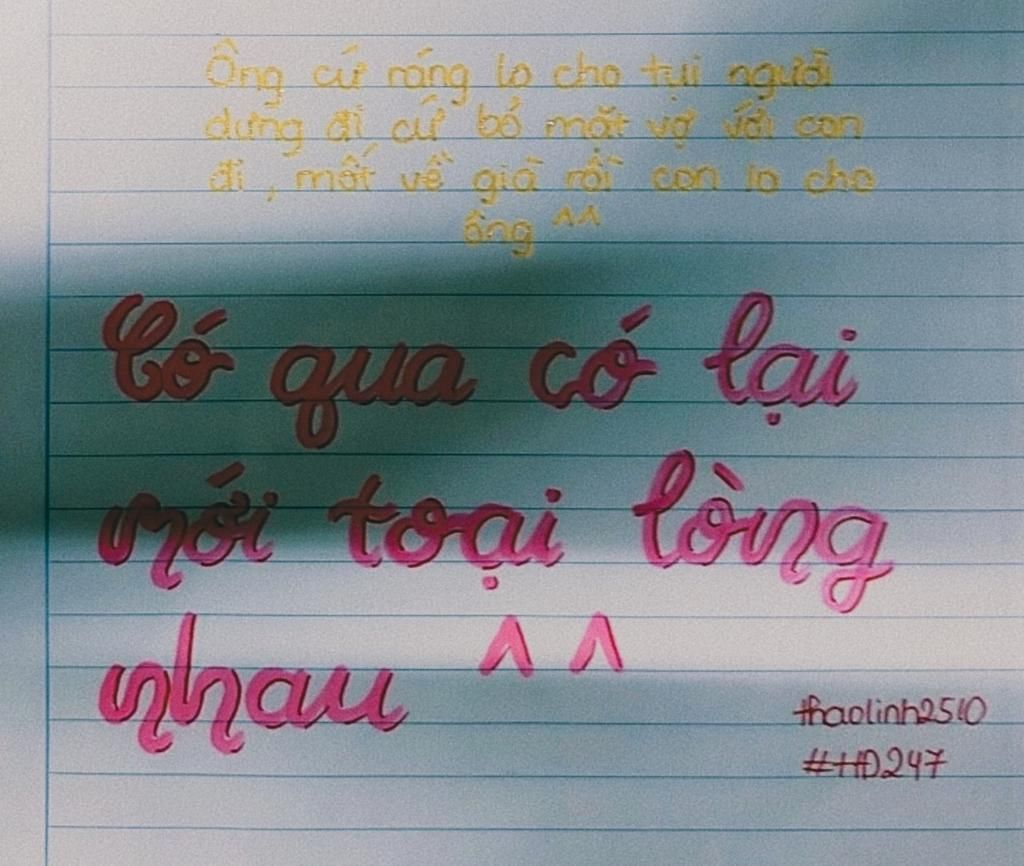 Ông cứ ráng lo cho tụi người
dưng đi cứ bỏ mặt vợ với con
đi, mốt về già rồi con lo cho
ông ^^
Có qua có lại
mới toại lòng
nhau ^^
thaolinh2510
#HD247